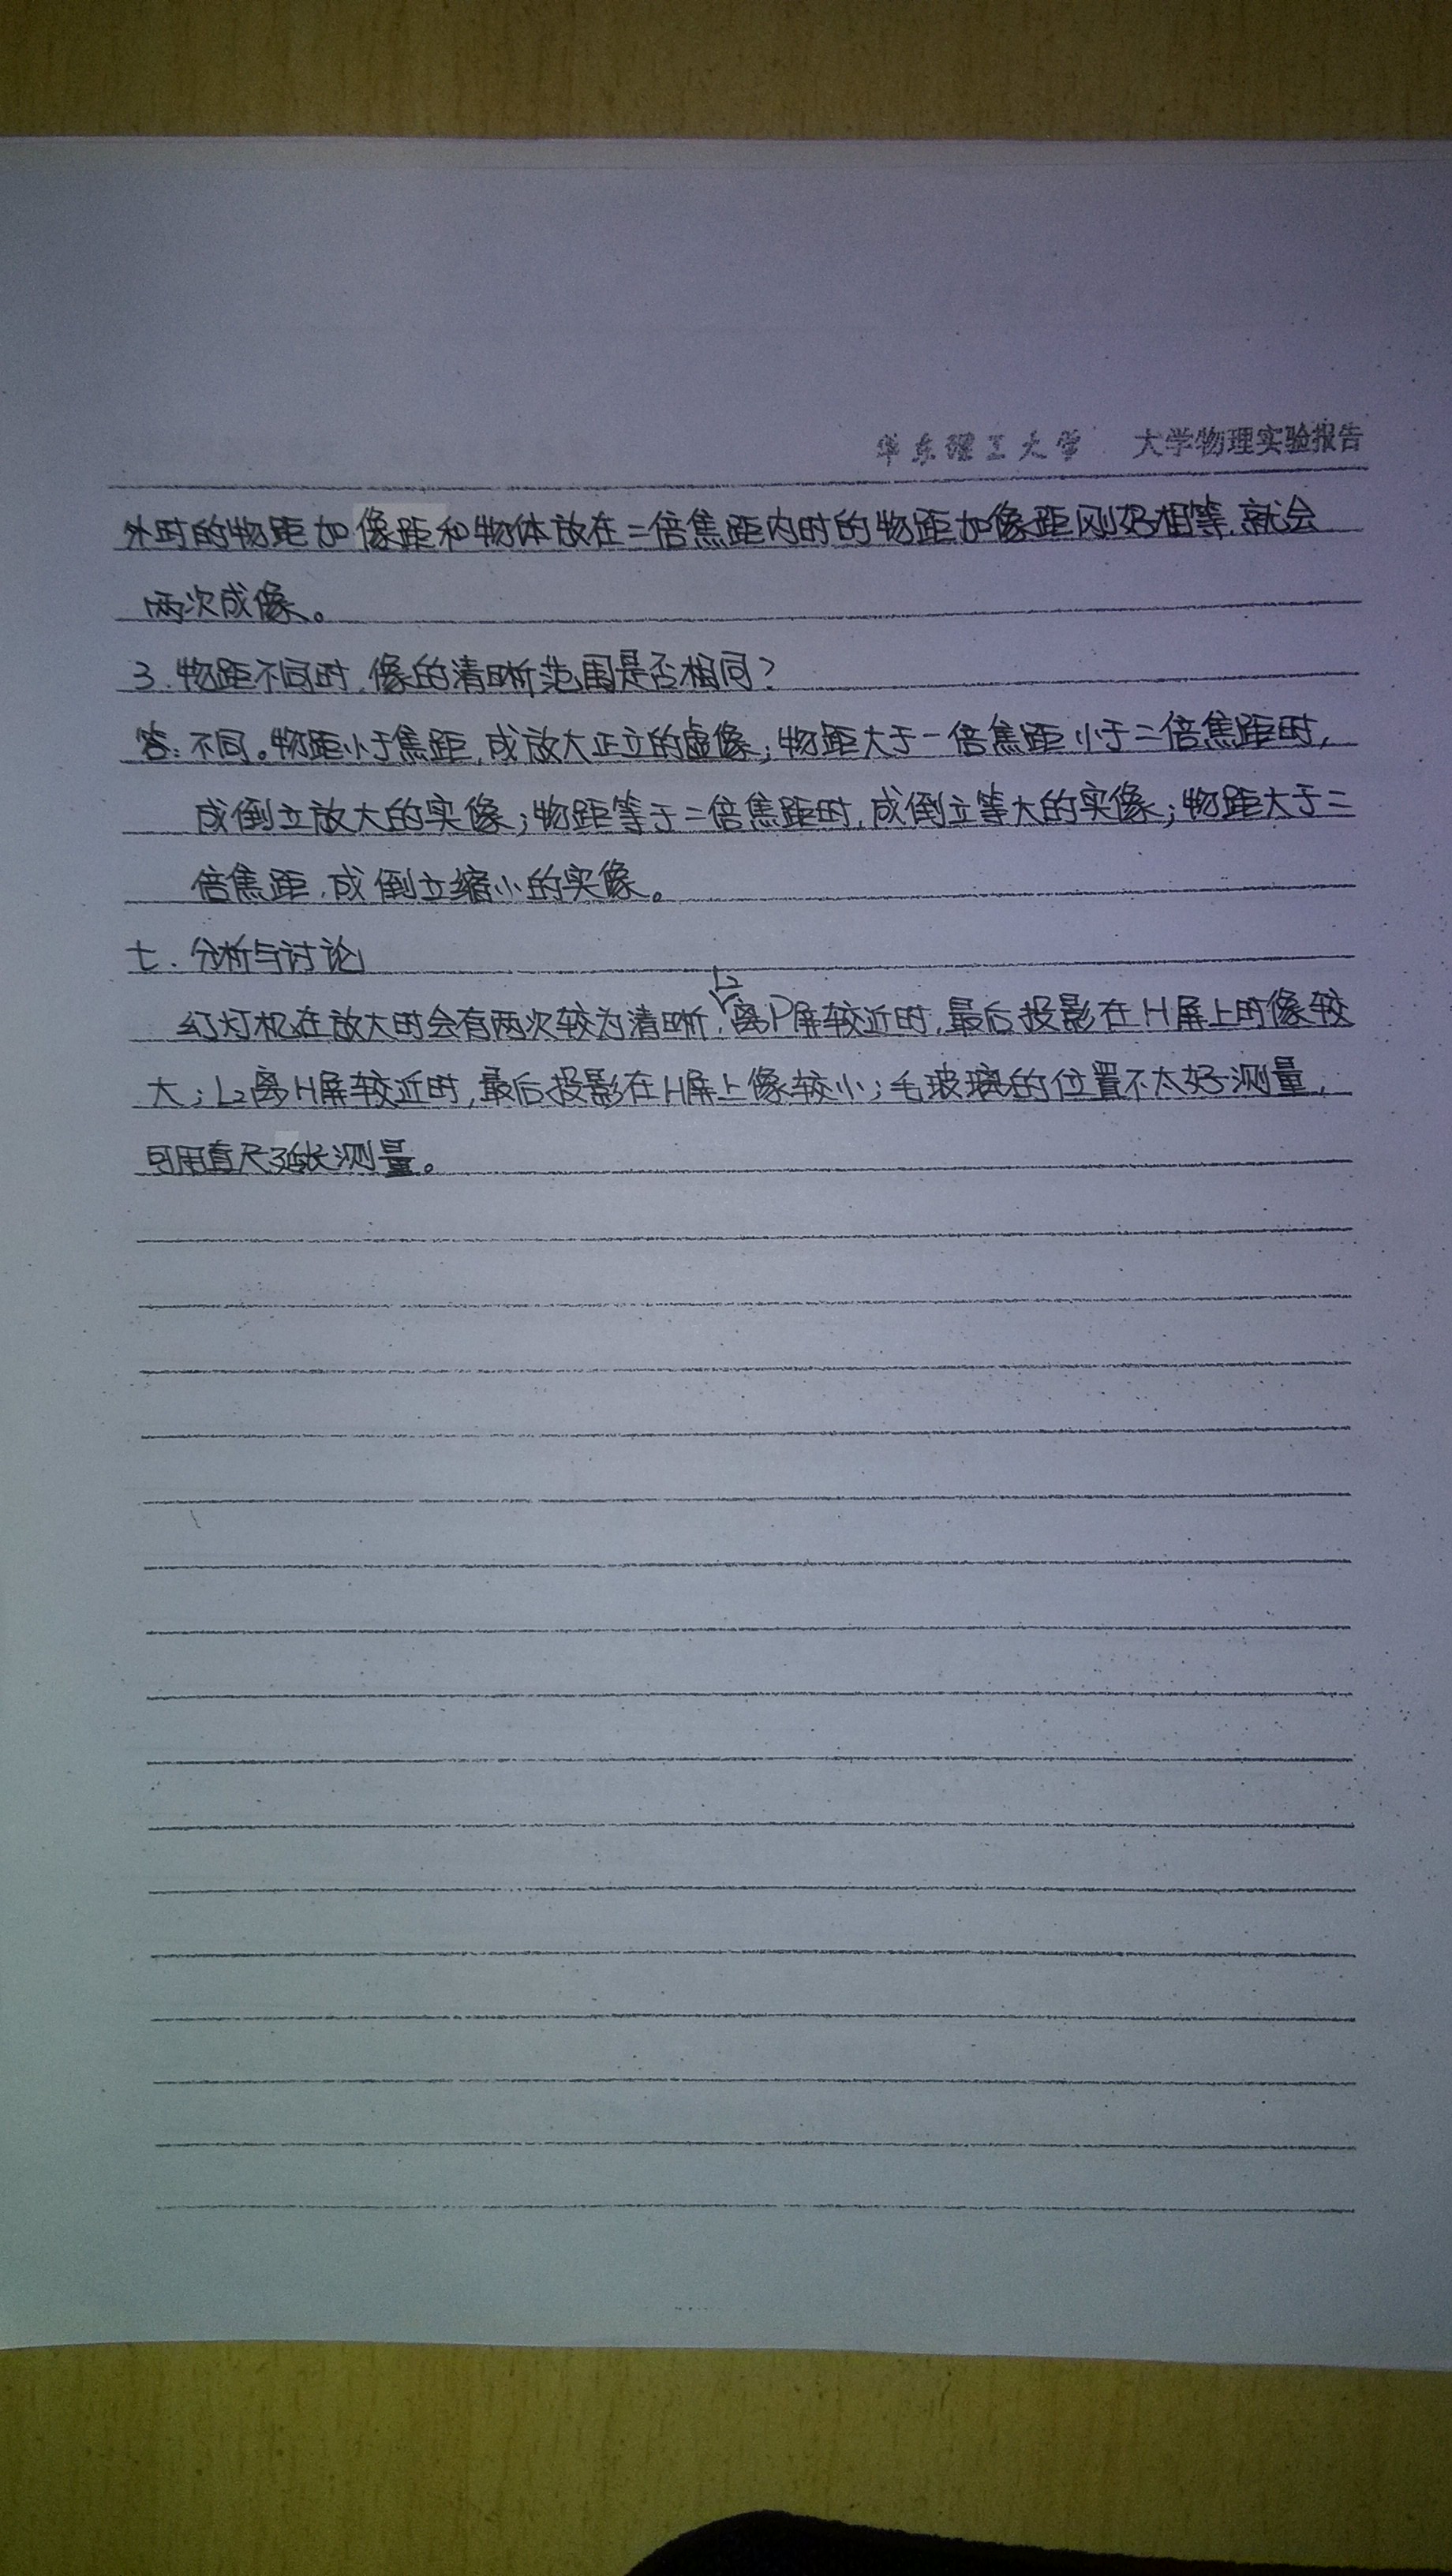 华东理工大学 大学物理实验报告
外时的物距加像距和物体放在二倍焦距内时的物距加像距刚好相等,就会
两次成像。
3.物距不同时,像的清晰范围是否相同?
答:不同。物距小于焦距,成放大正立的虚像;物距大于一倍焦距小于二倍焦距时,
成倒立放大的实像;物距等于二倍焦距时,成倒立等大的实像;物距大于二
倍焦距,成倒立缩小的实像。
七.分析与讨论
幻灯机在放大时会有两次较为清晰,L2离P屏较近时,最后投影在H屏上时像较
大;L2离H屏较近时,最后投影在H屏上像较小;毛玻璃的位置不太好测量,
可用直尺延长测量。